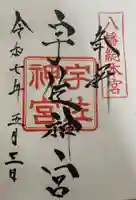 八幡総本宮
奉拝
宇佐神宮
宇佐神宮
令和七年 五月三日